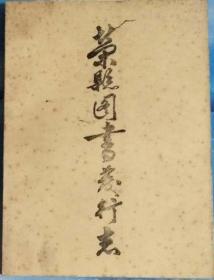 荣县图书发行志